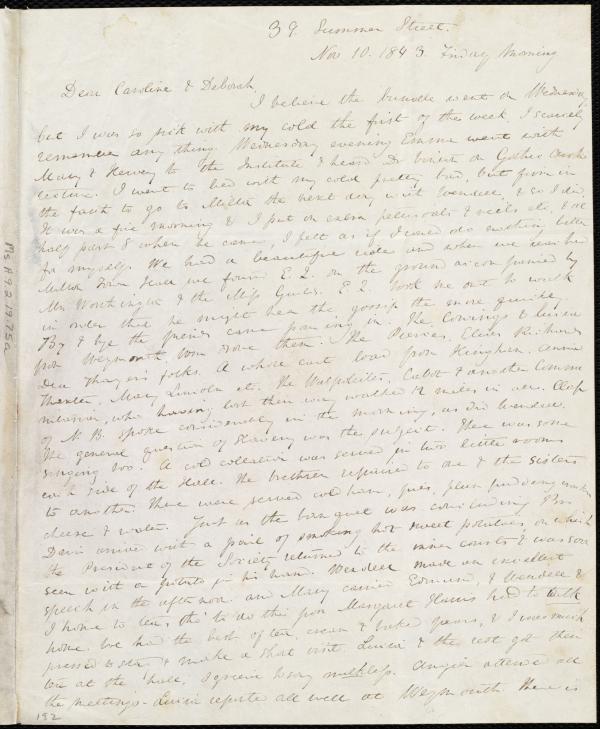 39. Summer Street.
Nov 10. 1843. Friday Morning
Dear Caroline & Deborah,
I believe the bundle went on Wednesday,
but I was so sick with my cold the first of the week I scarcely
remember any thing. Wednesday evening Emma went with
Mary & Henry to the Institute & heard Dr on Gothic
lecture. I went to bed with my cold pretty bad, but firm in
the faith to go to Milton the next day with Wendell, & so I did.
It was a fine morning & I put on extra & veils etc, & at
half past 8 when he came, I felt as if I could do nothing better
for myself. We had a beautiful ride and when we reached
Milton Town Hall we found E. Q. on the ground accompanied by
Mr Worthington & the Miss E. Q. took me out to walk
in order that he might hear the gossip the more quietly.
By & bye the friends came pouring in. The Cowings & Lucia
from Weymouth, Tom drove them. The Pierces, Eliza Richards
Dea Thayer's folks. A whole cart load from Hingham, Annie
Thaxter, Mary Lincoln etc. The Cabot & another Comm
who having lost their way walked 12 miles in all.
of N. B. spoke considerably in the morning, as did Wendell.
The general question of Slavery was the subject. There was some
singing too. A cold collation was served in two little rooms
each side of the Hall. The brethren repaired to one & the Sisters
to another. There were served cold ham, pies, plum pudding crackers
cheese & water. Just as the banquet was concluding Mrs
Davis arrived with a pail of smoking hot sweet potatoes, on which
the President of the Society returned to the inner courts & was soon
seen with a potato in his hand. Wendell made an excellent
speech in the afternoon and Mary carried Edmund, & Wendell &
I home to tea, tho' to do this poor Margaret had to walk
home. We had the best of tea, cream & baked pears, & I was much
pressed to stay & make a short visit. Lucia & the rest got their
tea at the hall, I grieve to say milkless. attended all
the meetings. Lucia reports all well at Weymouth. There is
192
Ms.A.9.2.19.75a